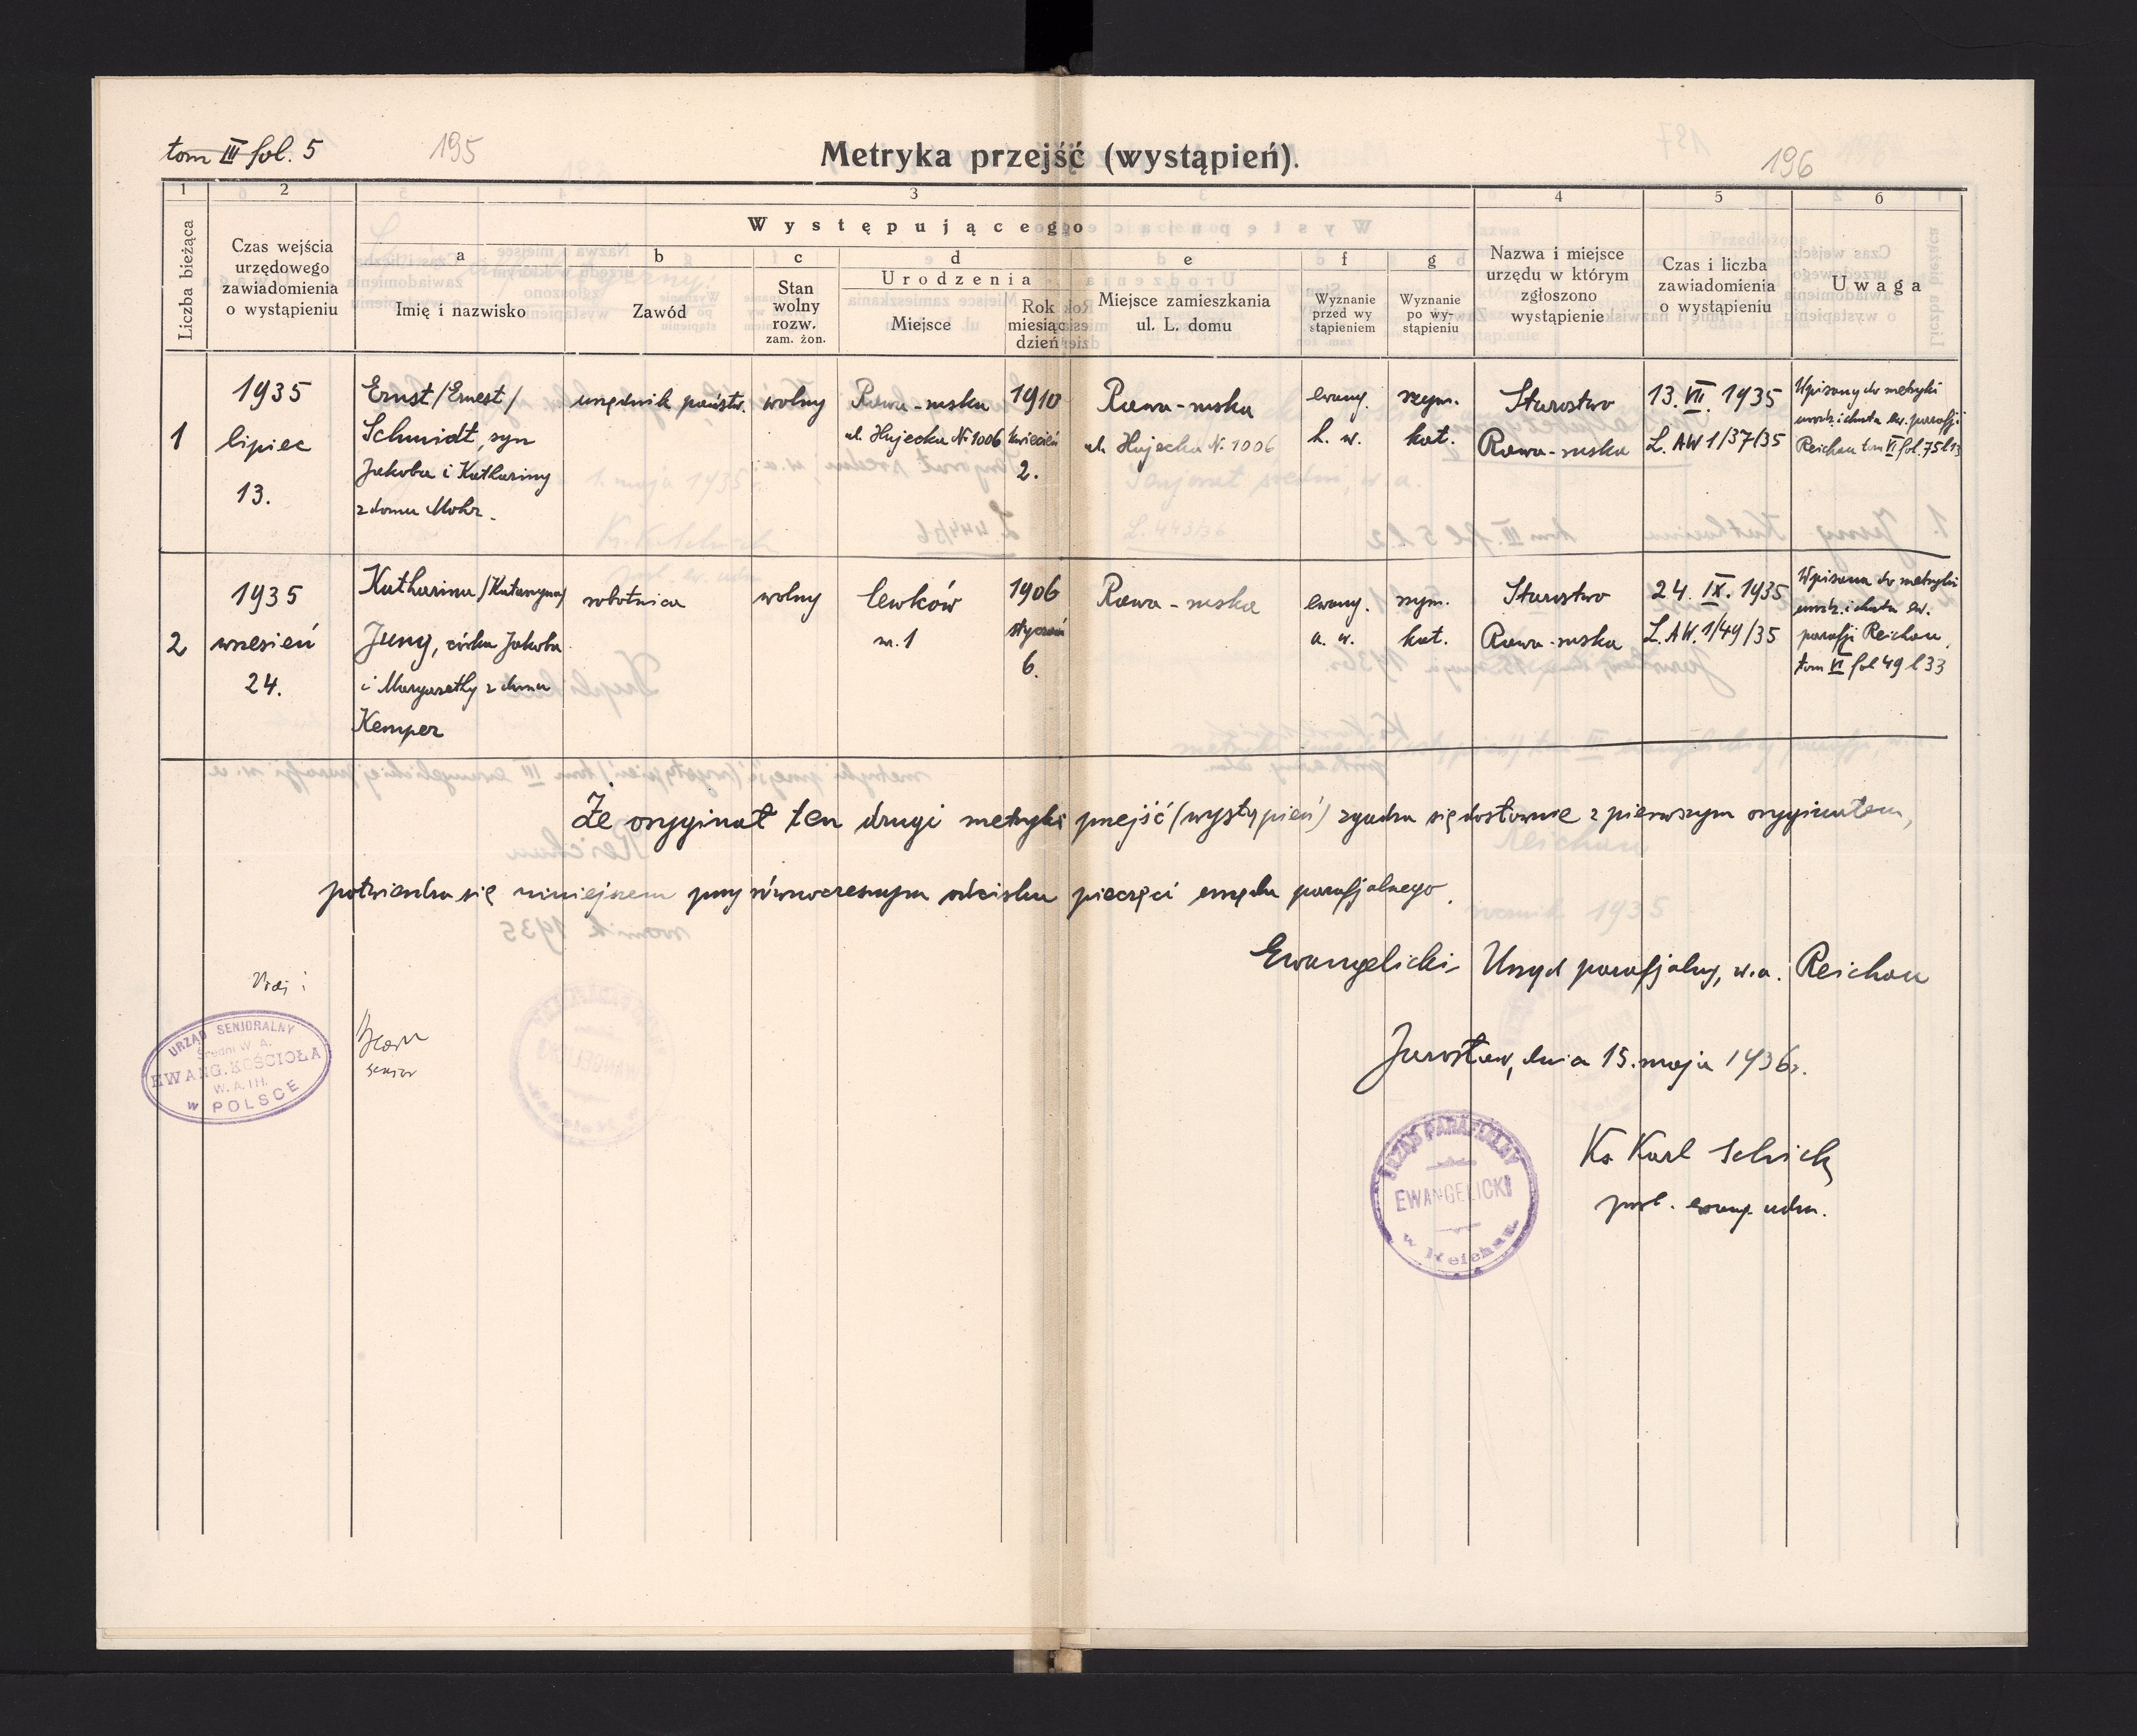 tom III fol. 5
195
Metryka przejść (wystąpień).
196
1 2 3 4 5 6
Liczba bieżąca
Czas wejścia
urzędowego
zawiadomienia
o wystąpieniu
Występującego
a b c d e f g
Imię i nazwisko
Zawód
Stan
wolny
rozw.
zam. żon.
Urodzenia
Miejsce
Rok
miesiąc
dzień
Miejsce zamieszkania
ul. L. domu
Wyznanie
przed wy
stąpieniem
Wyznanie
po wy-
stąpieniu
Nazwa i miejsce
urzędu w którym
zgłoszono
wystąpienie
Czas i liczba
zawiadomienia
o wystąpieniu
Uwaga
1
1935
lipiec
13.
Ernst /Ernest/
Schmidt, syn
Jakoba i Kathariny
z domu Mohr.
urzędnik państw.
wolny
Rawa-ruska
ul. Hujecka Nr 1006
1910
kwiecień
2.
Rawa-ruska
ul. Hujecka Nr. 1006
ewang.
h. w.
rzym.
kat.
Starostwo
Rawa-ruska
13. VII. 1935
L. AW 1/37/35
Wpisany do metryki
urodz. i chrztu ew. parafji
Reichau tom VI fol. 75 l 13
2
1935
wrzesień
24.
Katharina /Katarzyna/
Jung, córka Jakoba
i Margarethy z domu
Kemper
robotnica
wolny
Lewków
nr. 1
1906
styczeń
6.
Rawa-ruska
ewang.
a. w.
rzym.
kat.
Starostwo
Rawa-ruska
24. IX. 1935
L. AW. 1/49/35
Wpisana do metryki
urodz. i chrztu ew.
parafji Reichau
tom VI fol 49 l 33
Że oryginał ten drugi metryki przejść (wystąpień) zgadza się dosłownie z pierwszym oryginałem,
potwierdza się niniejszem przy równoczesnym odcisku pieczęci urzędu parafjalnego.
Ewangelicki Urząd parafjalny, w.a. Reichau
Jarosław, dnia 15. maja 1936r.
Ks Karl Schick
prob. ewang. udm.
URZĄD PARAFIALNY
EWANGELICKI
w Reichau
URZĄD SENJORALNY
Średni W. A.
EWANG. KOŚCIOŁA
W. A. I H.
W POLSCE
senior